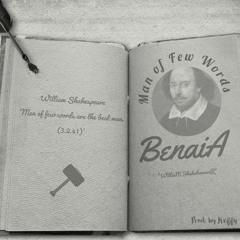 William Shakespeare
"Men of few words are the best men."
(3.2.41)
Man of Few Words
BenaiA
Prod. by